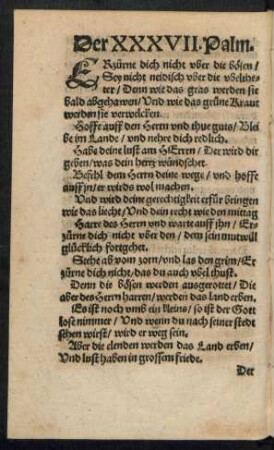 Der XXXVII. Psalm.
ERzürne dich nicht vber die bösen/
Sey nicht neidisch vber die vbelthe-
ter/ Denn wie das gras werden sie
bald abgehawen/ Vnd wie das grüne Kraut
werden sie verwelcken.
Hoffe auff den Herrn vnd thue guts/ Blei
be im Lande/ vnd nehre dich redlich.
Habe deine lust am HErren/ Der wird dir
geben/ was dein hertz wündschet.
Befehl dem Herrn deine wege/ vnd hoffe
auff jn/ er wirds wol machen.
Vnd wird deine gerechtigkeit erfür bringen
wie das liecht/ Vnd dein recht wie den mittag
Harre des Herrn vnd warte auff jhn/ Er-
zürne dich nicht vber den/ dem sein mutwill
glücklich fortgehet.
Stehe ab vom zorn/ vnd las den grim/ Er
zürne dich nicht/ das du auch vbel thust.
Denn die bösen werden ausgerottet/ Die
aber des Herrn harren/ werden das land erben.
Es ist noch vmb ein kleins/ so ist der Gott
lose nimmer/ Vnd wenn du nach seiner stedt
sehen wirst/ wird er weg sein.
Aber die elenden werden das Land erben/
Vnd lust haben in grossem friede.
Der